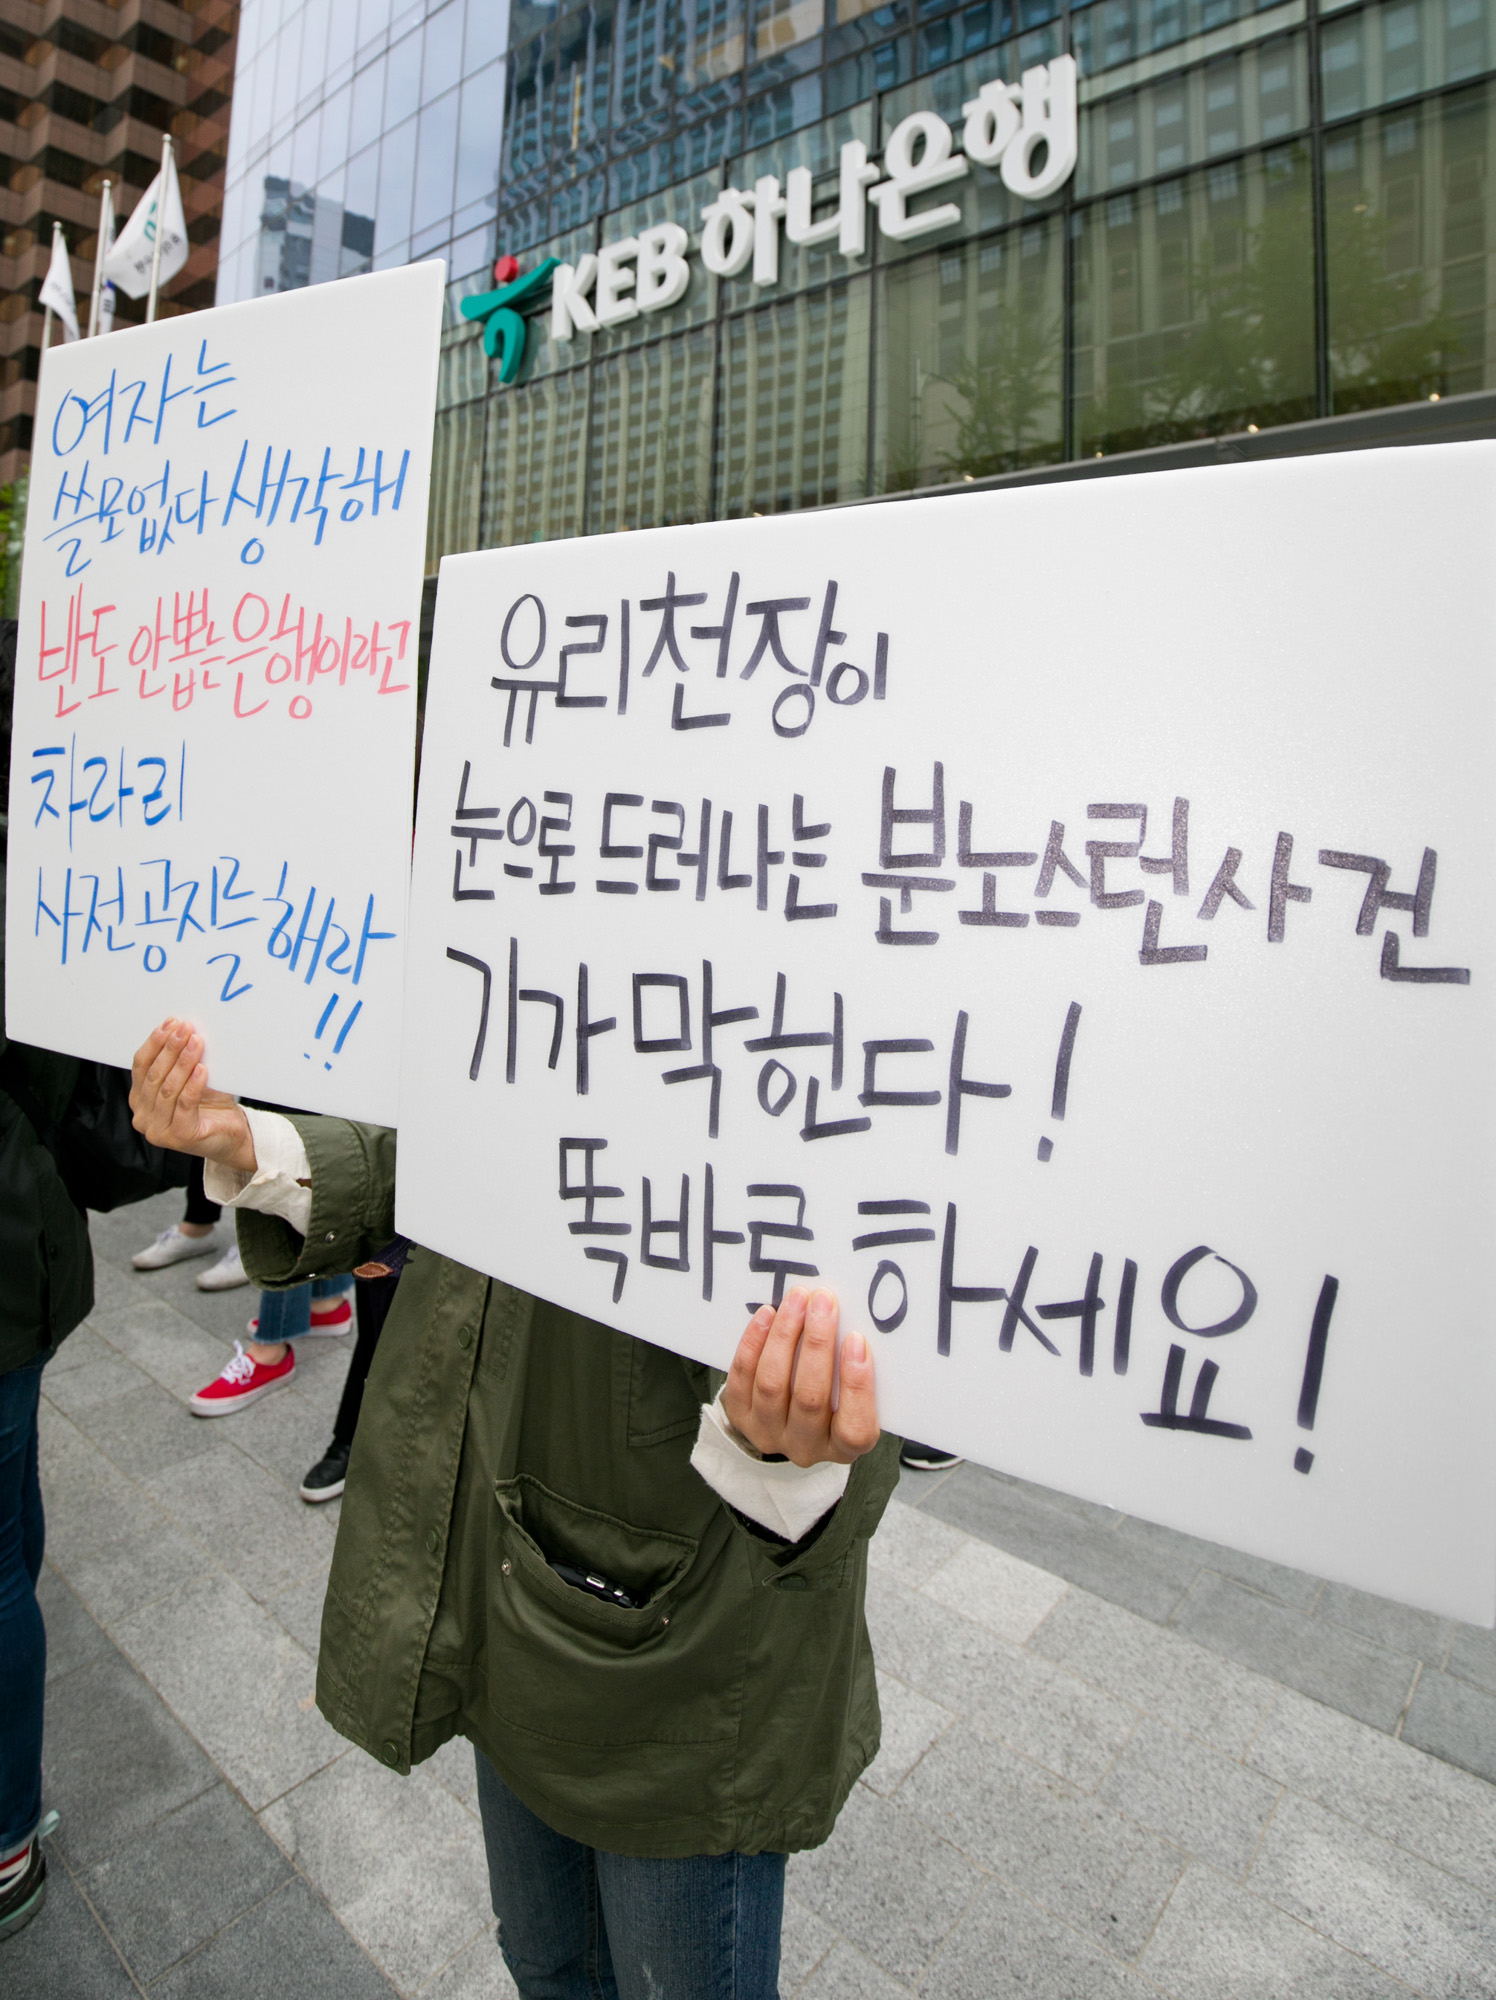 KEB 하나은행
여자는
쓸모없다 생각해
반도 안뽑는 은행이라고
차라리
사전공지를 해라
!!
유리천장이
눈으로 드러나는 분노스런 사건
기가 막힌다!
똑바로 하세요!